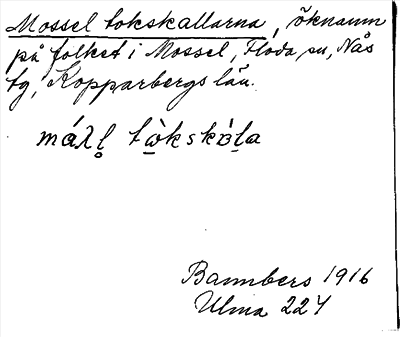 Mossel tokskallarna, öknamn
på folket i Mossel, Floda sn, Nås
tg, Kopparbergs län.
tòkskòla
Bannbers 1916
Ulma 224